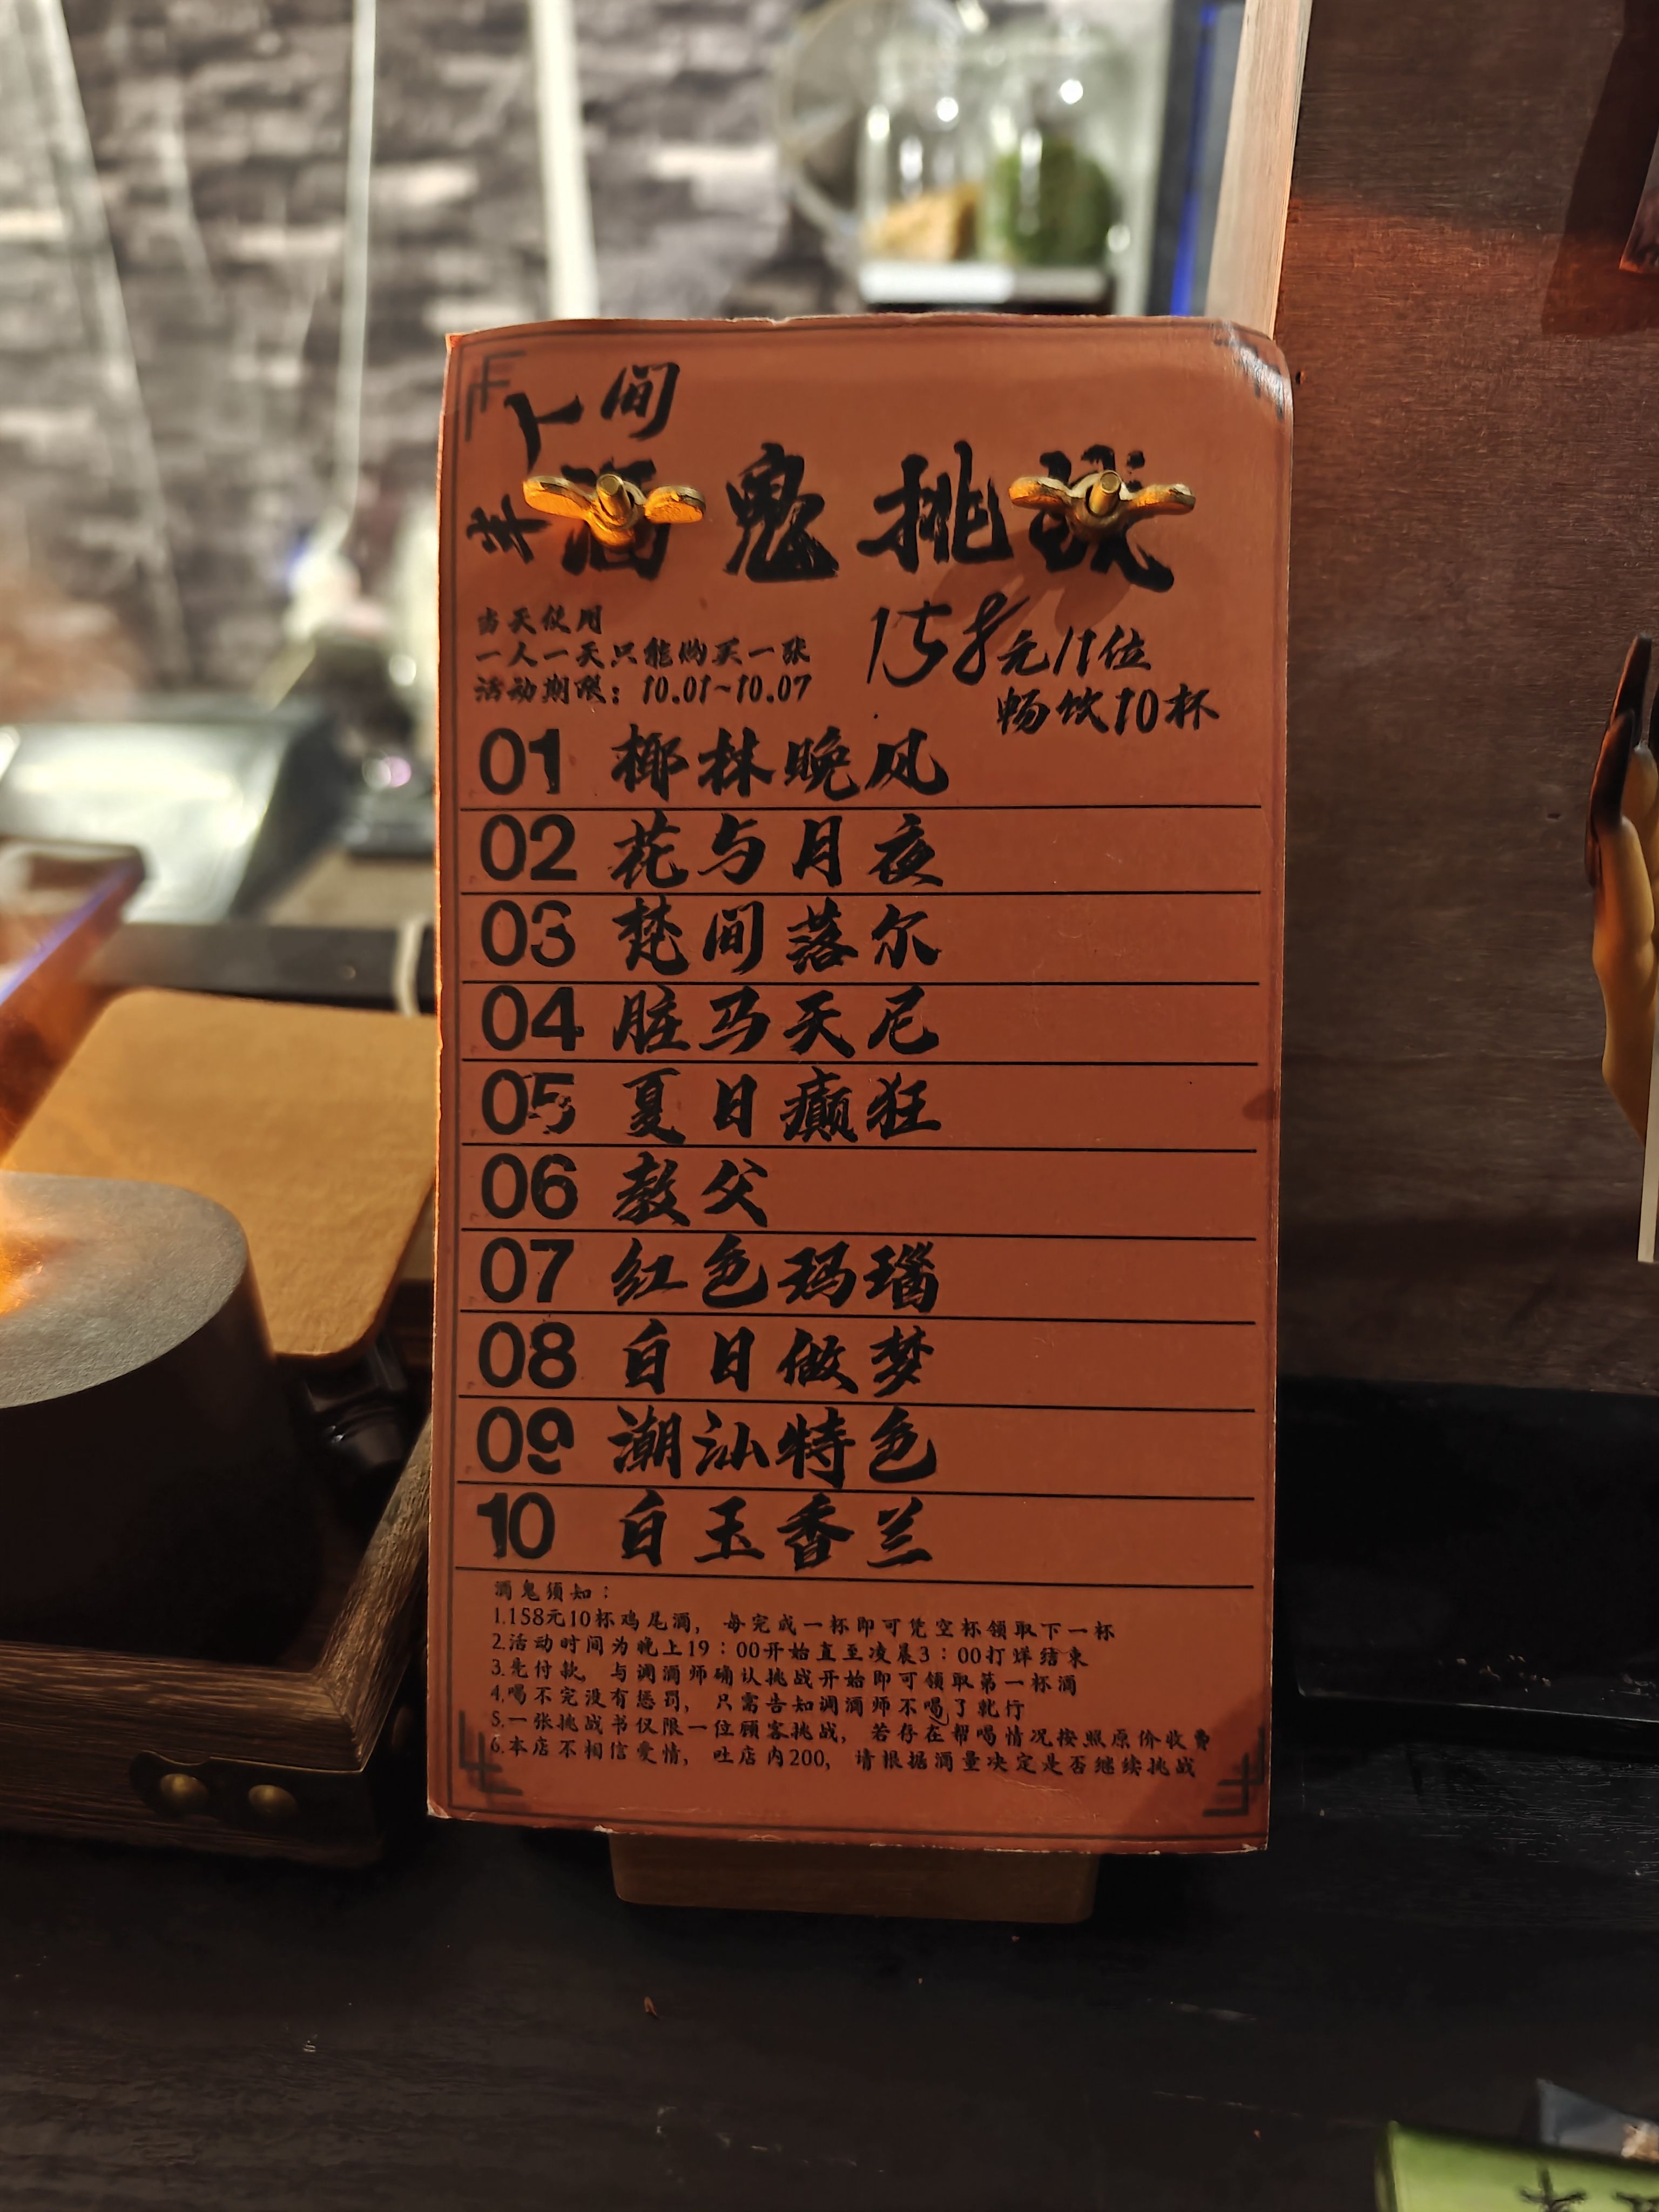 人间
半
酒鬼挑战
当天使用
一人一天只能购买一张
活动期限：10.01~10.07
158元/1位
畅饮10杯
01 椰林晚风
02 花与月夜
03 梵间落尔
04 脏马天尼
05 夏日癫狂
06 教父
07 红色玛瑙
08 白日做梦
09 潮汕特色
10 白玉香兰
酒鬼须知：
1.158元10杯鸡尾酒，每完成一杯即可凭空杯领取下一杯
2.活动时间为晚上19：00开始直至凌晨3：00打烊结束
3.先付款，与调酒师确认挑战开始即可领取第一杯酒
4.喝不完没有惩罚，只需告知调酒师不喝了就行
5.一张挑战书仅限一位顾客挑战，若存在帮喝情况按照原价收费
6.本店不相信爱情，吐店内200，请根据酒量决定是否继续挑战